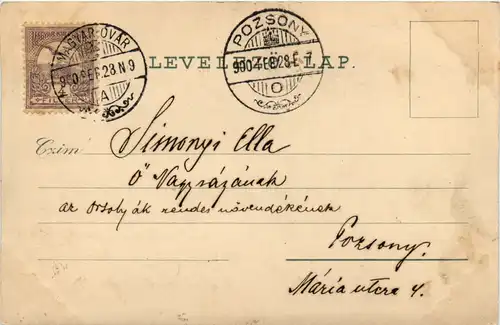 MAGYAR-ÓVÁR
POZSONY
LEVELEZŐ-LAP.
Czim
Simonyi Ella
Ő Nagyságának
az Orsolyák rendes növendékének
Pozsony.
Mária utcza 4.